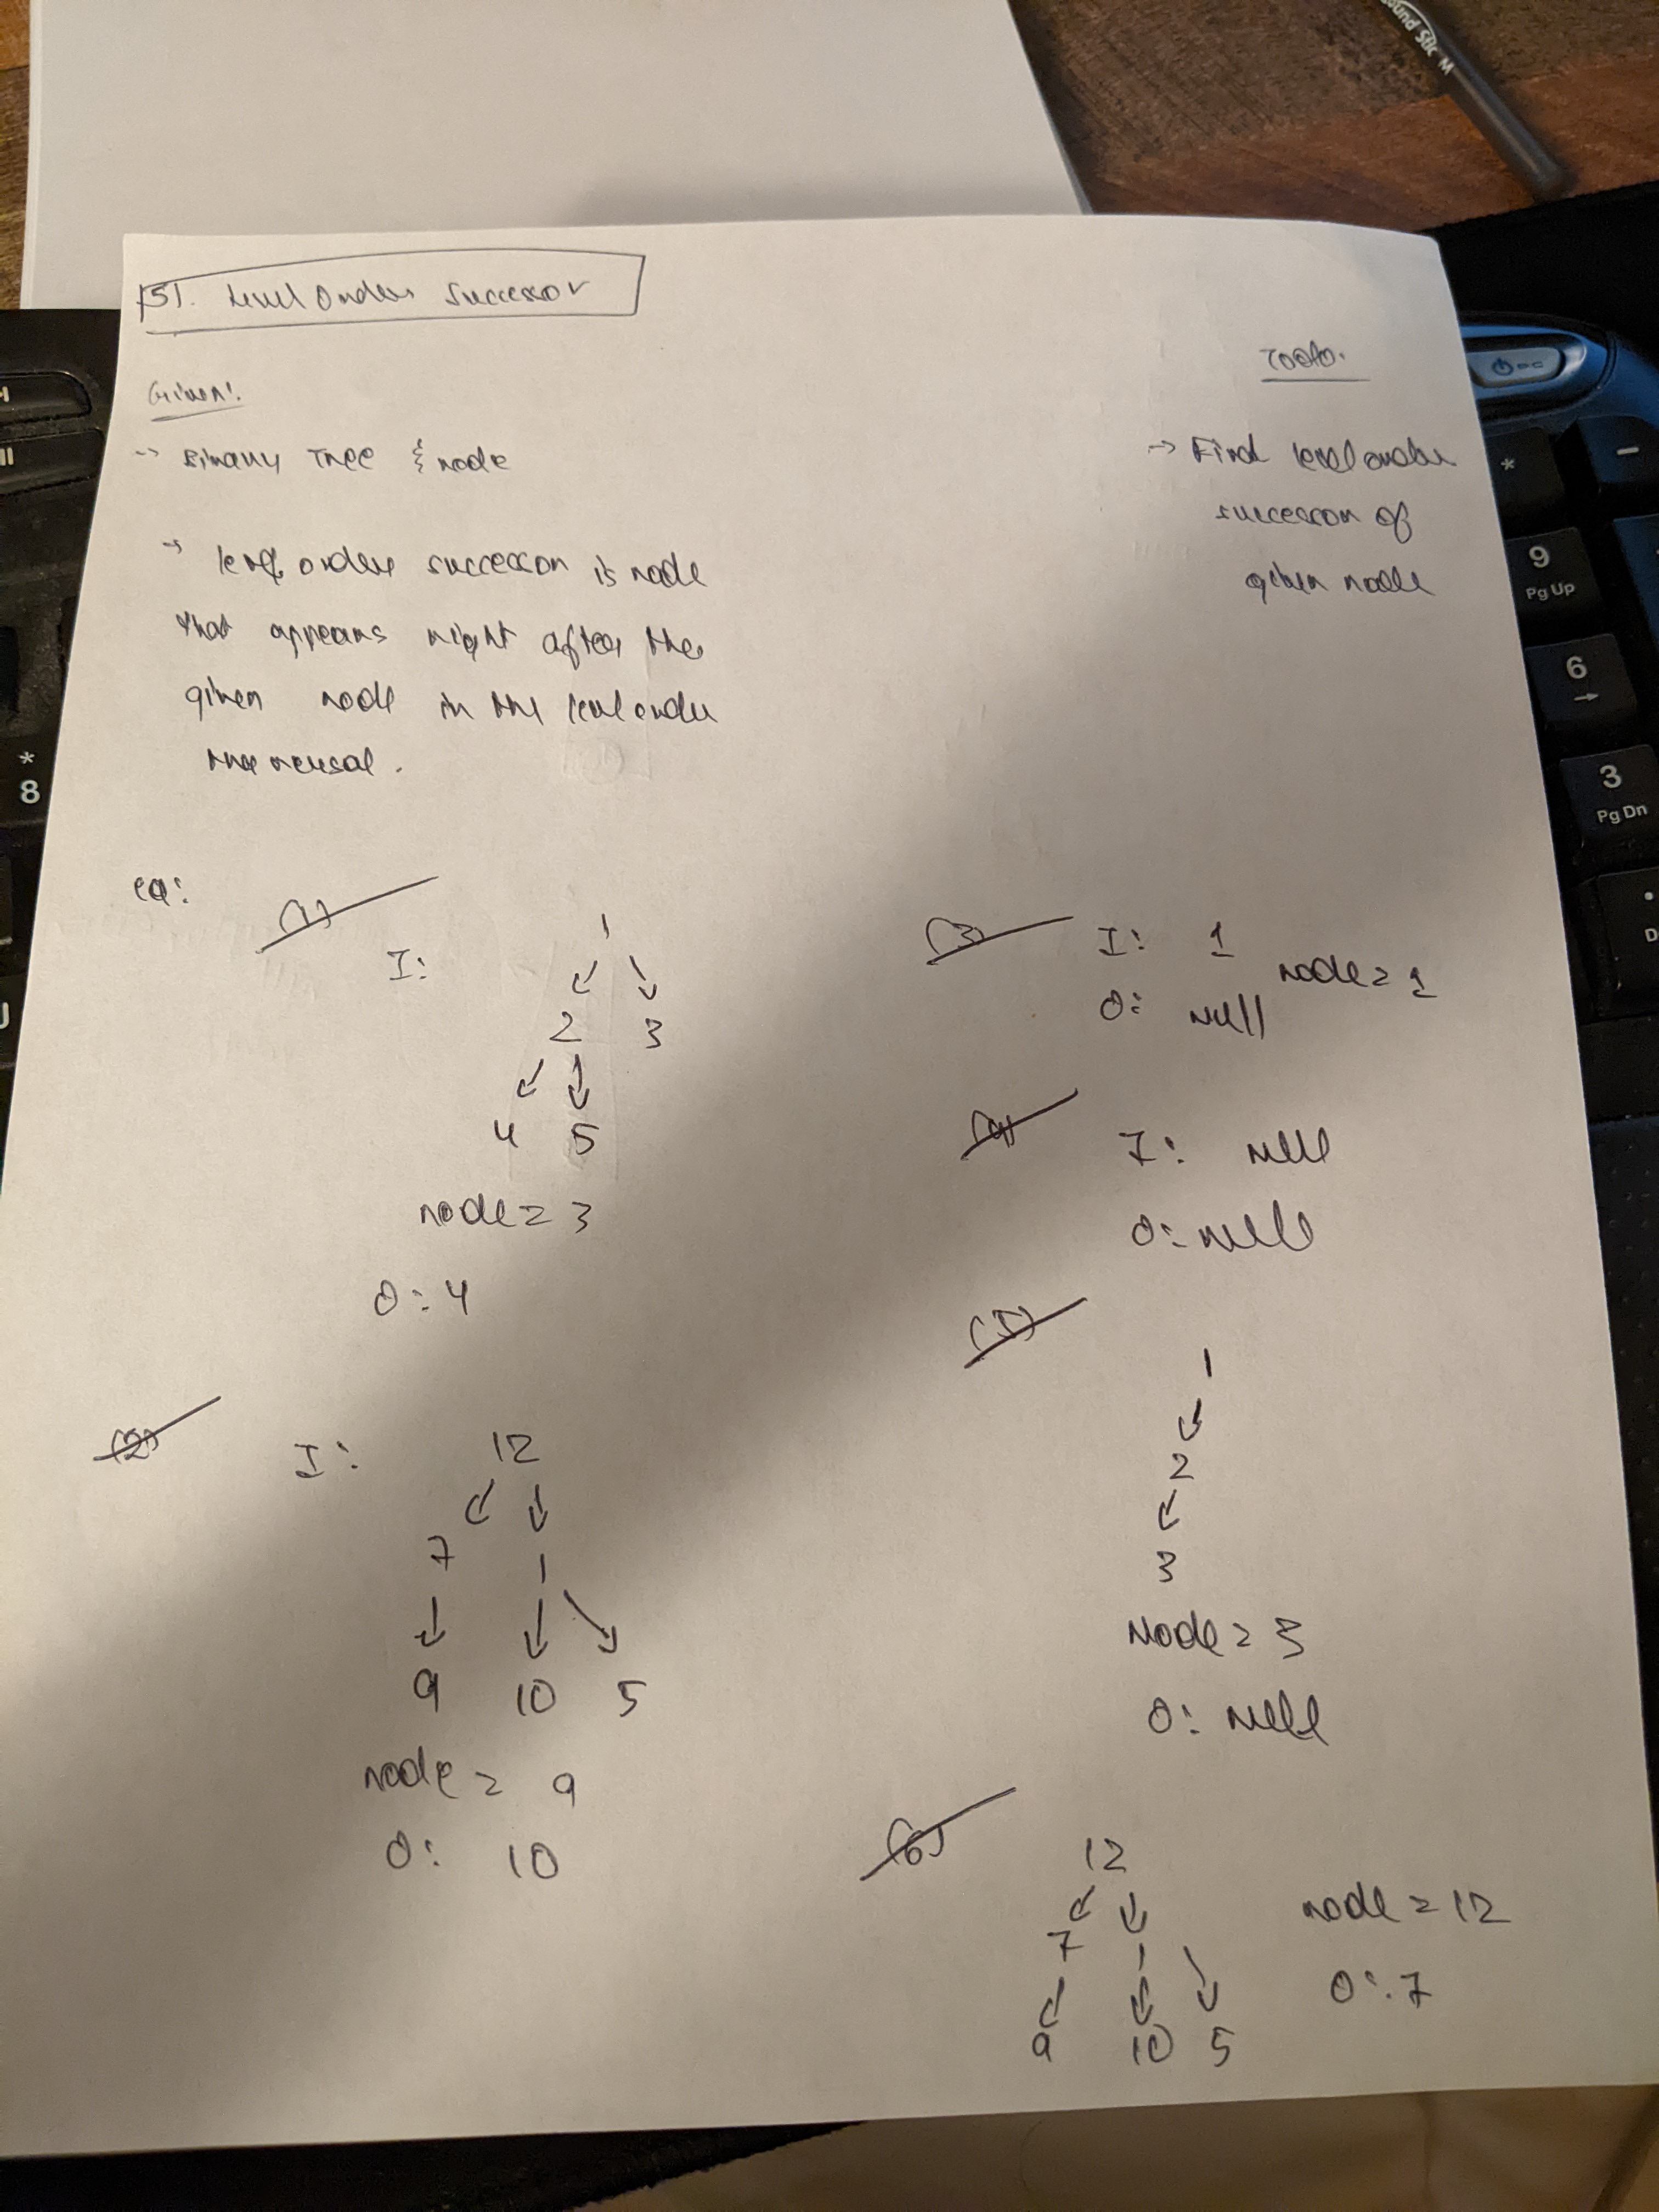 151. Level Order Successor
Given:
-> Binary Tree & node
-> level order successor is node
that appears right after the
given node in the level order
traversal.
Todo.
-> Find level order
successor of
given node
eg:
(1)
I:
1
2 3
4 5
node = 3
O: 4
(2)
I: 12
7 1
9 10 5
node = 9
O: 10
(3) I: 1 node = 1
O: null
(4) I: null
O: null
(5)
1
2
3
Node = 3
O: null
(6) 12
7 1
9 10 5
node = 12
O: 7
ound Stic M
* -
9
Pg Up
6
→
3
Pg Dn
.
D
*
8